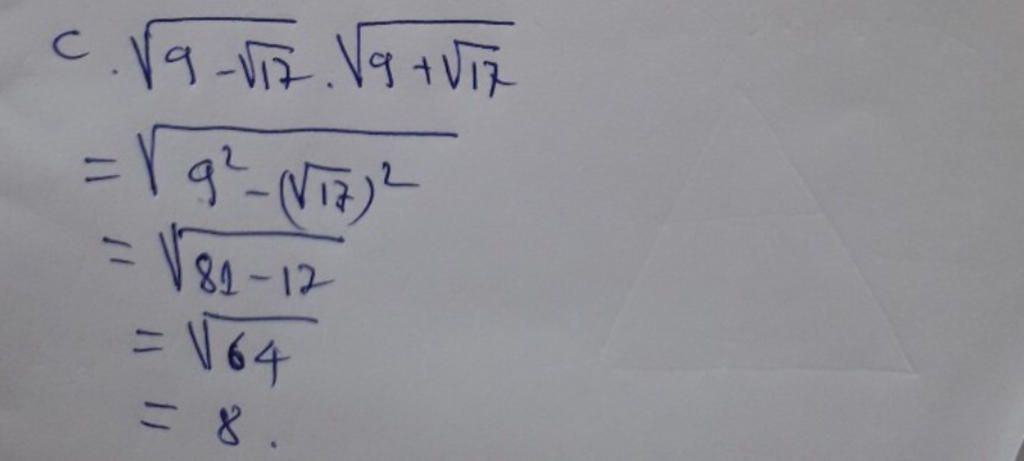 c. √(9 - √17) . √(9 + √17)
= √(9² - (√17)²)
= √(81 - 17)
= √64
= 8.